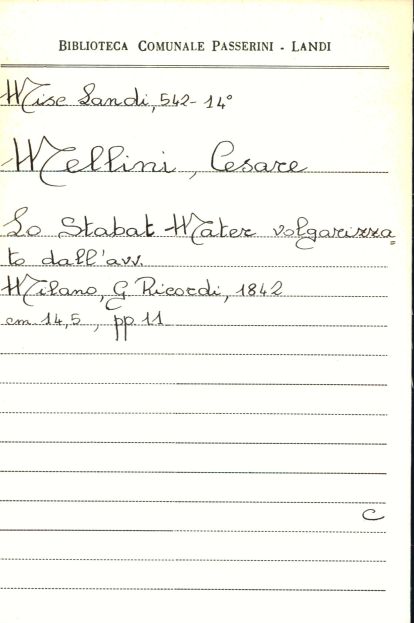 BIBLIOTECA COMUNALE PASSERINI - LANDI
Misc Landi, 542-14°
Mellini, Cesare
Lo Stabat Mater volgarizza=
to dall'avv.
Milano, G Ricordi, 1842
cm 14,5, pp 11
C